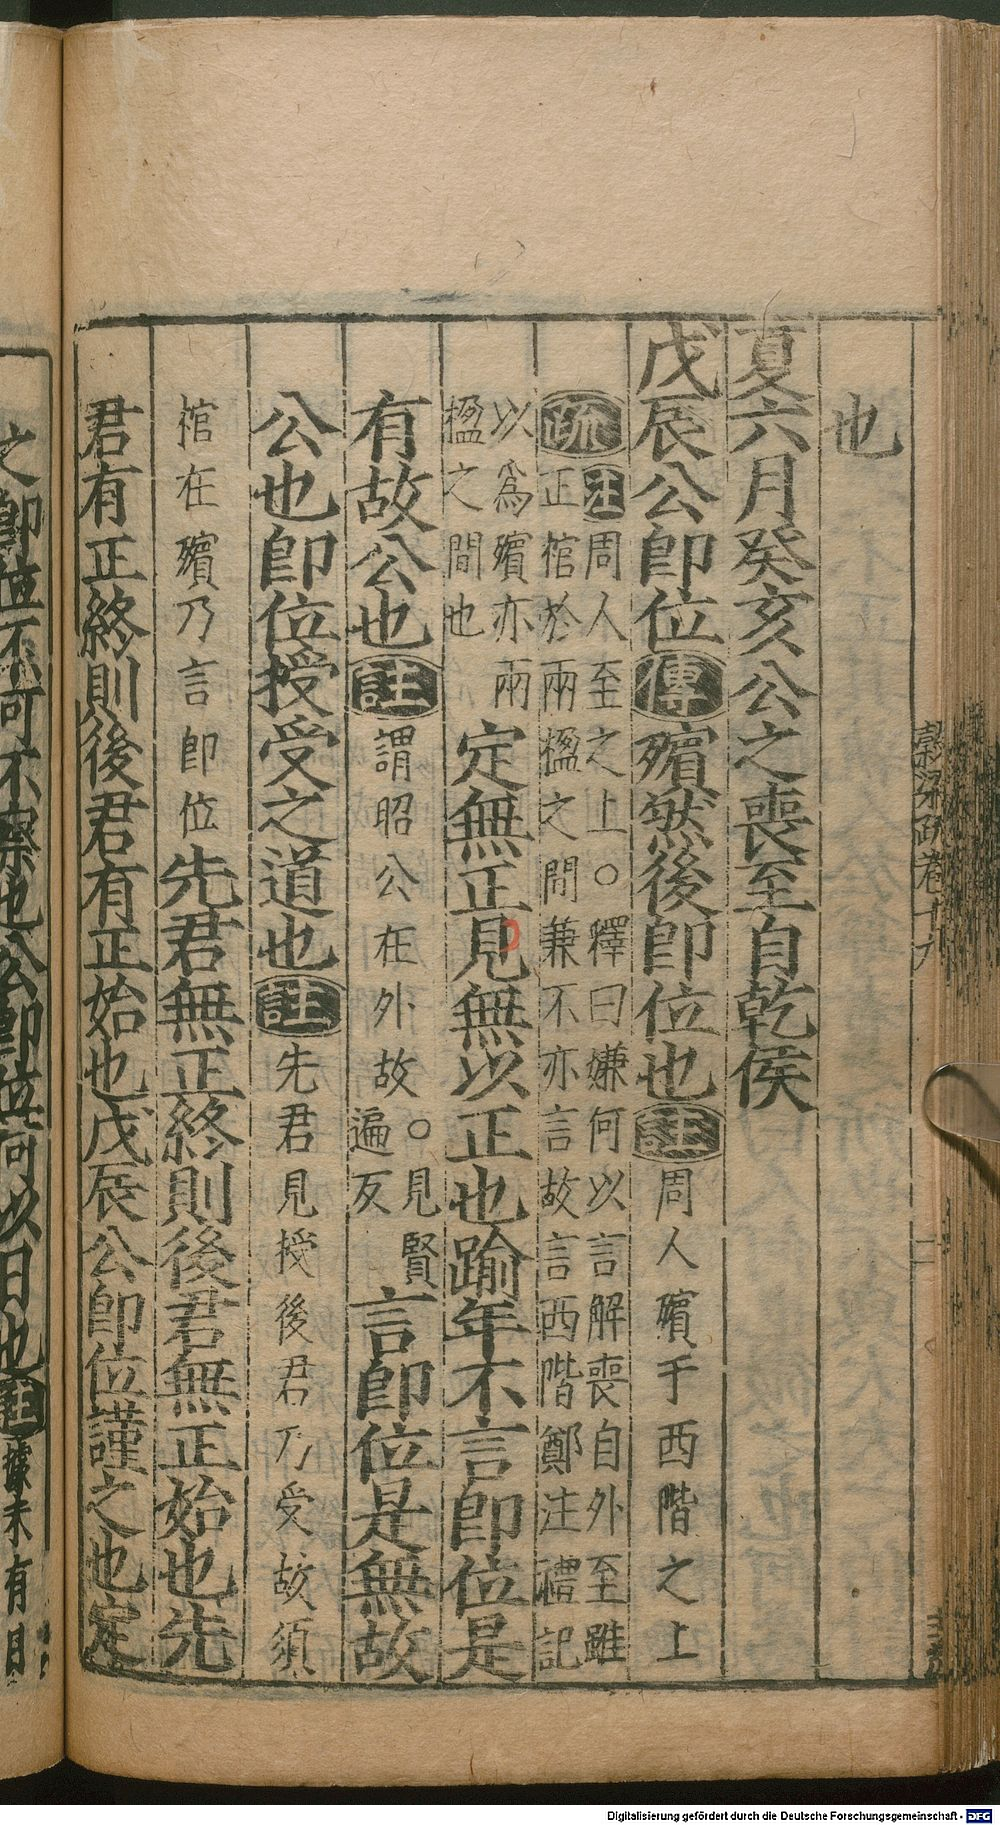 也
夏六月癸亥公之喪至自乾侯
戊辰公卽位傳殯然後卽位也註周人殯于西階之上
疏注周人至之上○釋曰嫌何以言解喪自外至雖
正棺於兩楹之間兼不亦言故言西階鄭注禮記
以爲殯亦兩
楹之間也
定無正見無以正也踰年不言卽位是
有故公也註謂昭公在外故○見賢
遍反
言卽位是無故
公也卽位授受之道也註先君見授後君乃受故須
棺在殯乃言卽位先君無正終則後君無正始也先
君有正終則後君有正始也戊辰公卽位謹之也定
之卽位不可不察也公卽位何以日也註據未有日
穀梁疏卷十九
Digitalisierung gefördert durch die Deutsche Forschungsgemeinschaft - DFG